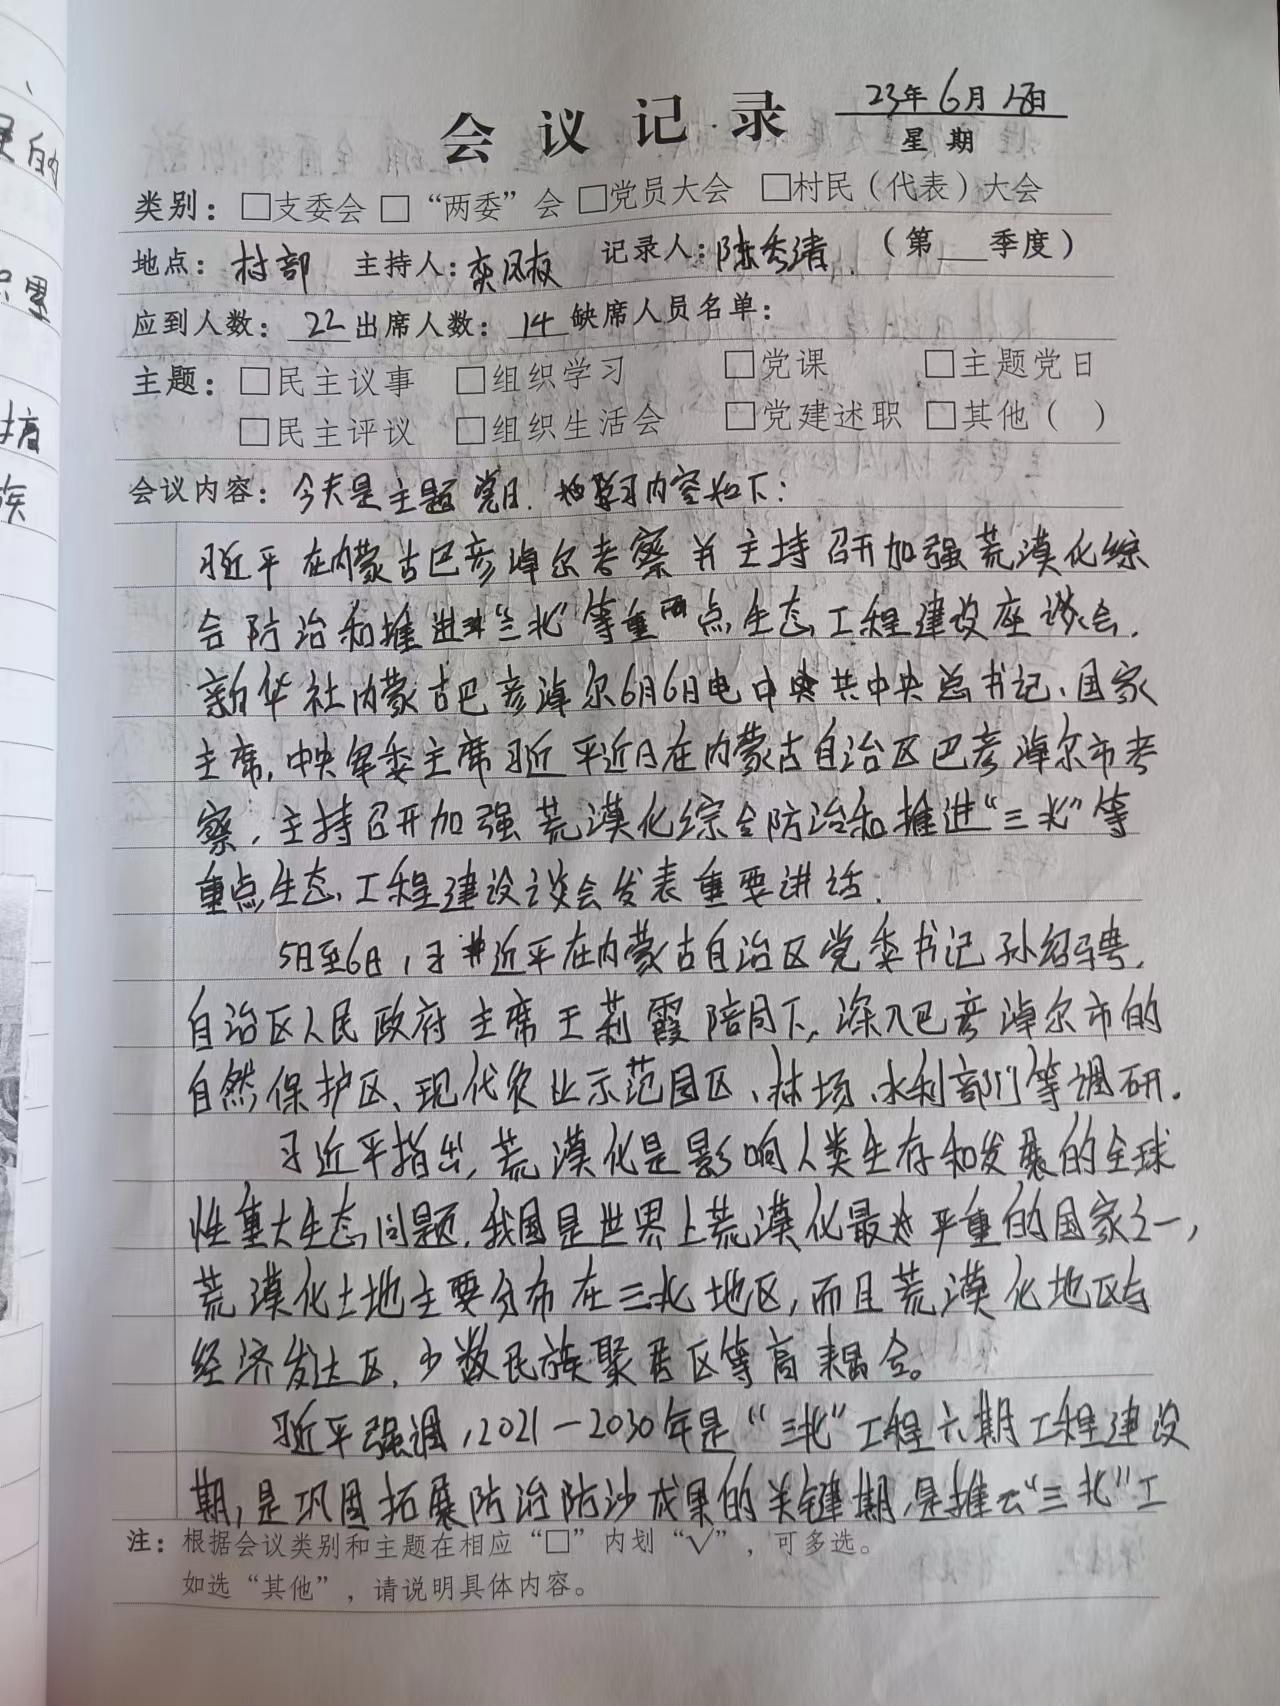 会议记录 23年6月18日
星期
类别：□支委会 □“两委”会 □党员大会 □村民（代表）大会
地点：村部 主持人：栾凤权 记录人：陈秀清 （第 季度）
应到人数：22 出席人数：14 缺席人员名单：
主题：□民主议事 □组织学习 □党课 □主题党日
□民主评议 □组织生活会 □党建述职 □其他（ ）
会议内容：今天是主题党日。学习内容如下：
习近平在内蒙古巴彦淖尔考察并主持召开加强荒漠化综
合防治和推进“三北”等重点生态工程建设座谈会.
新华社内蒙古巴彦淖尔6月6日电中共中央总书记、国家
主席,中央军委主席习近平近日在内蒙古自治区巴彦淖尔市考
察,主持召开加强荒漠化综合防治和推进“三北”等
重点生态工程建设谈会发表重要讲话.
5日至6日,习近平在内蒙古自治区党委书记孙绍骋,
自治区人民政府主席王莉霞陪同下,深入巴彦淖尔市的
自然保护区、现代农业示范园区、林场、水利部门等调研.
习近平指出,荒漠化是影响人类生存和发展的全球
性重大生态问题,我国是世界上荒漠化最严重的国家之一,
荒漠化土地主要分布在三北地区,而且荒漠化地区与
经济发达区,少数民族聚居区等高耦合。
习近平强调,2021—2030年是“三北”工程六期工程建设
期,是巩固拓展防治防沙成果的关键期,是推“三北”工
注：根据会议类别和主题在相应“□”内划“√”，可多选。
如选“其他”，请说明具体内容。
是的
只里
族